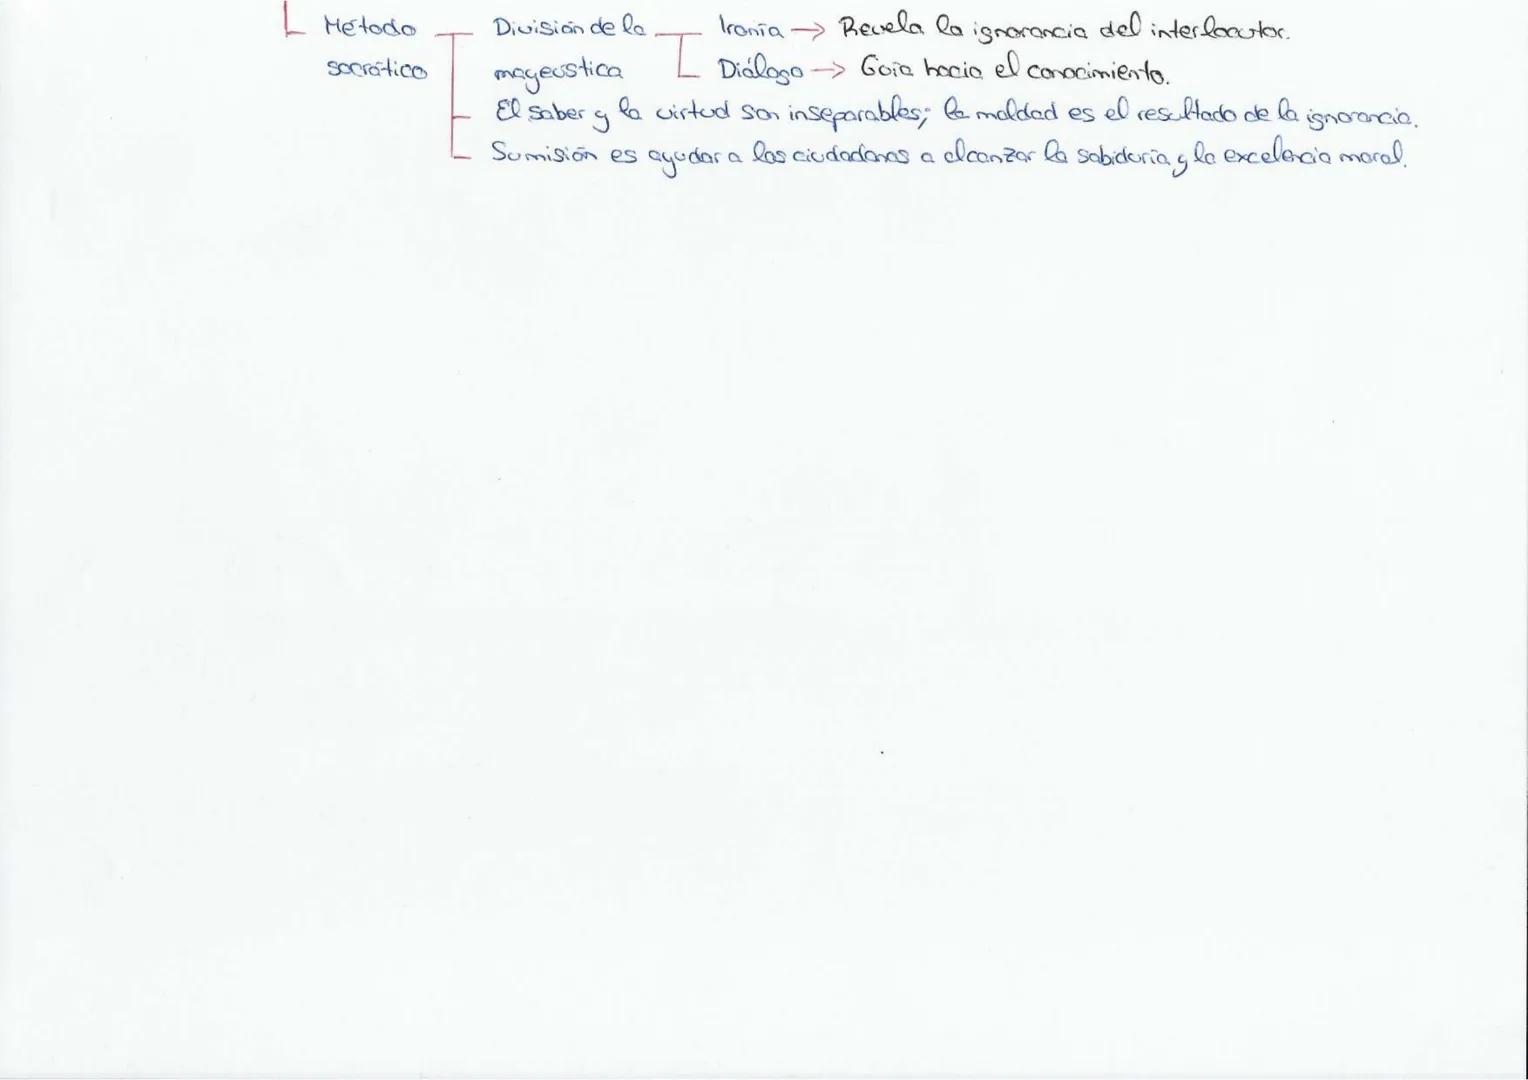 Método
socrático
División de la
mayeústica
Ironía → Revela la ignorancia del interlocutor.
Diálogo → Guía hacia el conocimiento.
El saber y la virtud son inseparables; la maldad es el resultado de la ignorancia.
Su misión es ayudar a los ciudadanos a alcanzar la sabiduría y la excelencia moral.